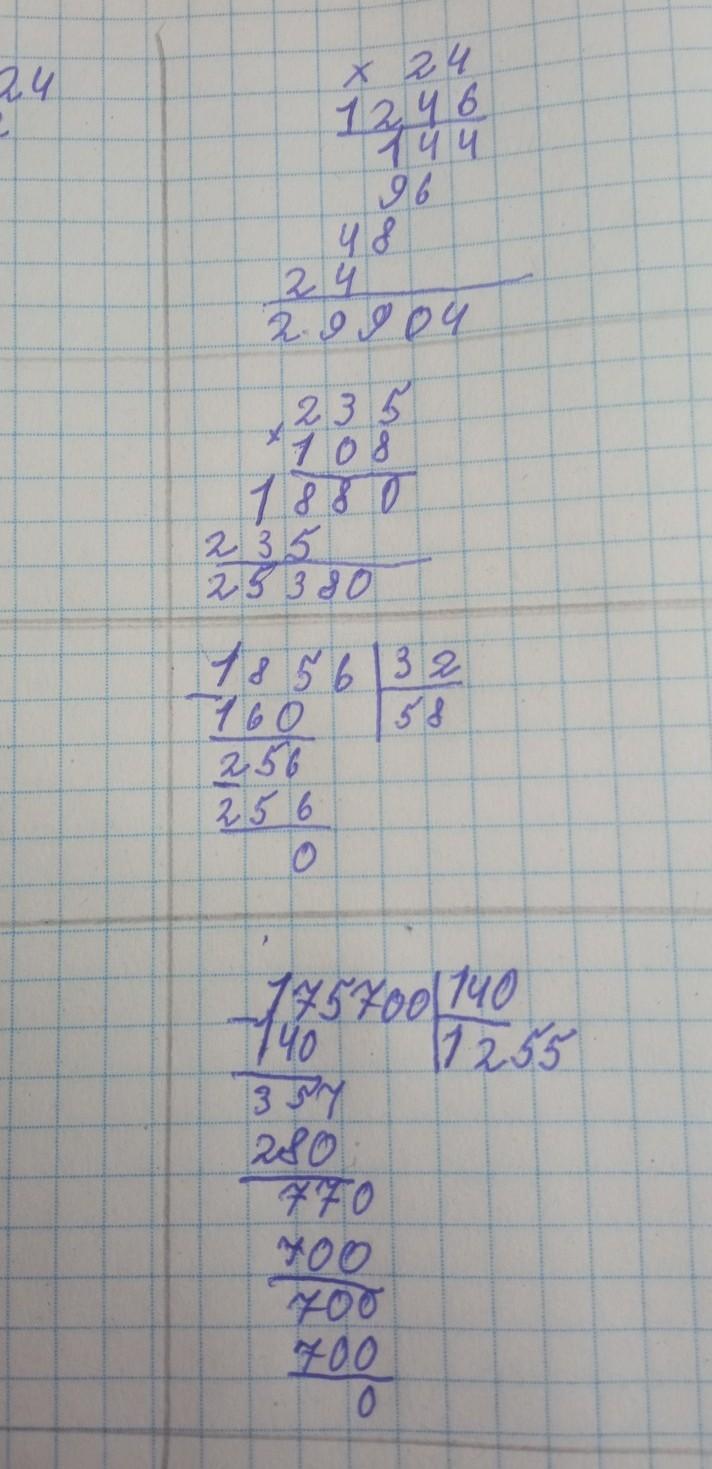 24
× 24
1246
144
96
48
24
29904
235
× 108
1880
235
25380
1856 | 32
- 160 | 58
256
- 256
0
175700 | 140
- 140 | 1255
357
280
770
700
700
700
0